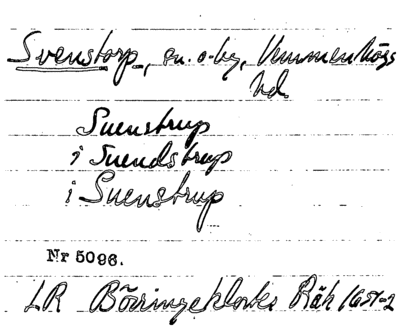 Svenstorp, sn. o. by, Vemmenhögs
hd.
Suenstrup
i Suendstrup
i Suenstrup
Nr 5096.
LR Börringeklosters Räk 1651-2